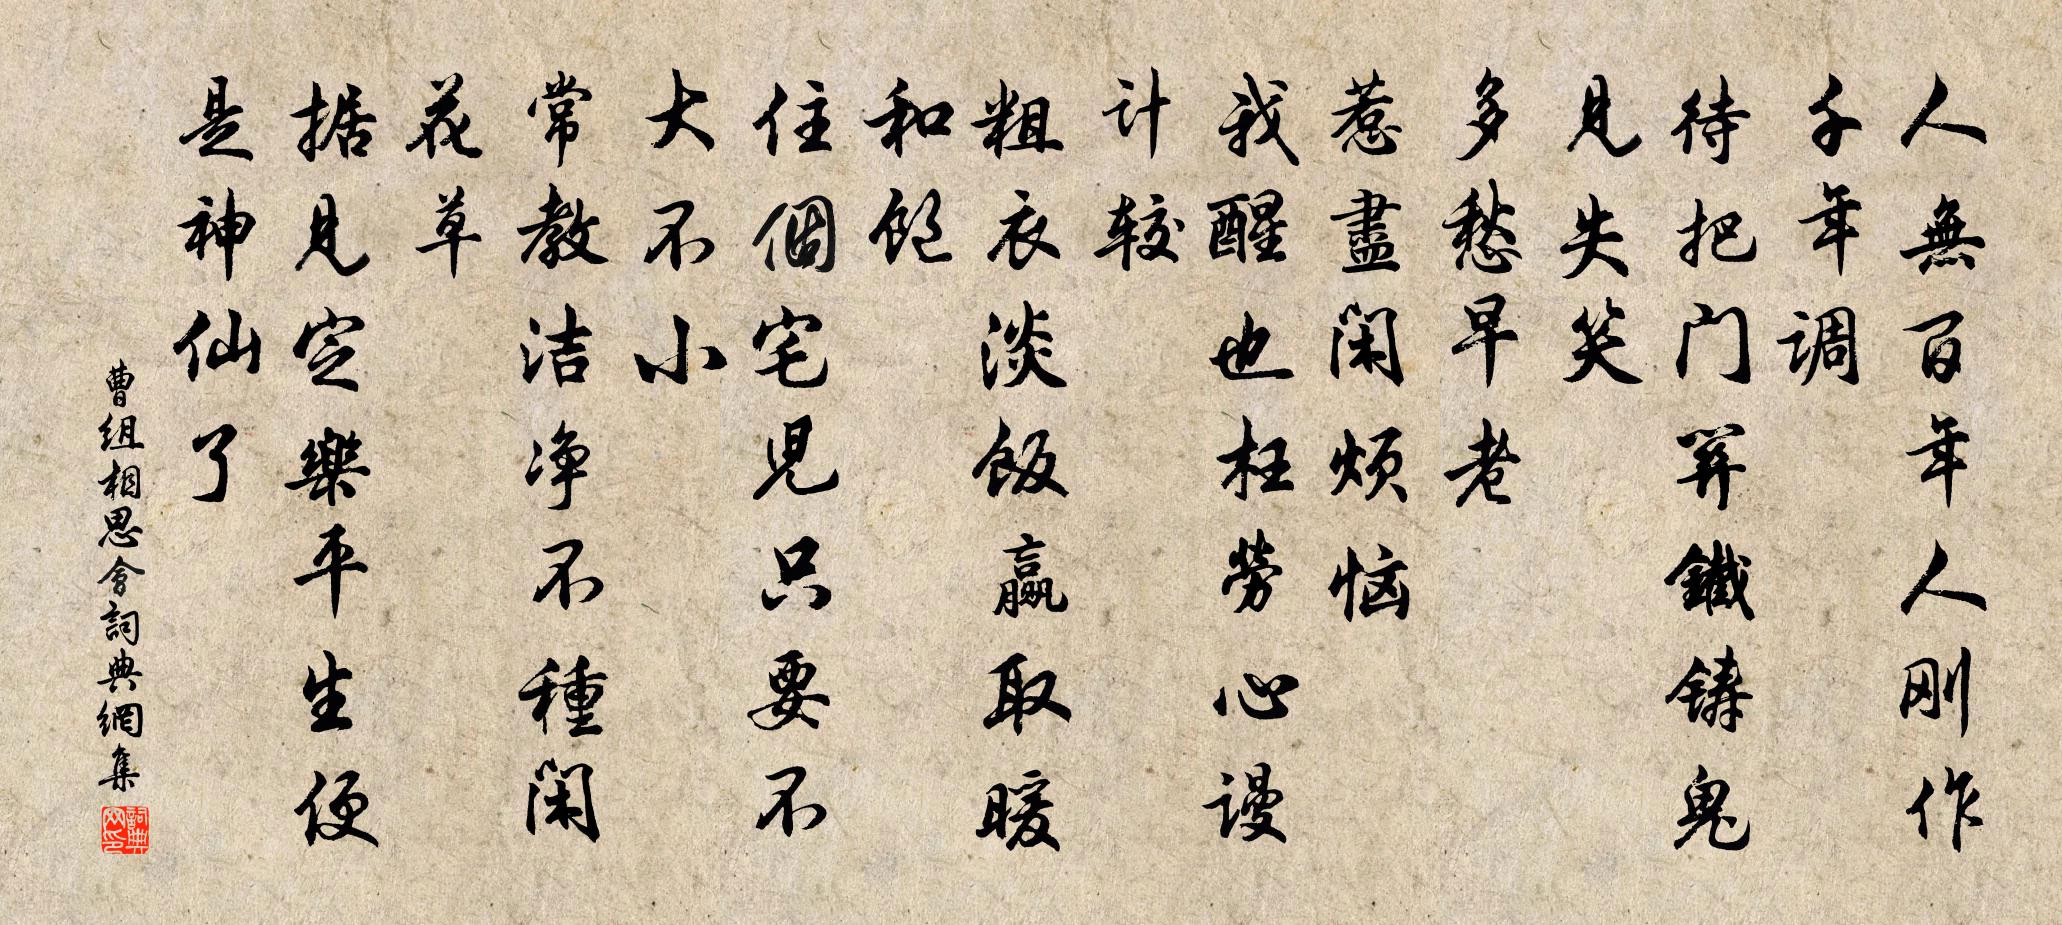 人無百年人刚作
千年调
待把门関鐵鑄鬼
見失笑
多愁早老
惹盡閑烦恼
我醒也枉劳心谩
计较
粗衣淡飯赢取暖
和飽
住個宅兒只要不
大不小
常教洁净不種閑
花草
据見定樂平生便
是神仙了
曹組相思會詞典網集
詞典
网印